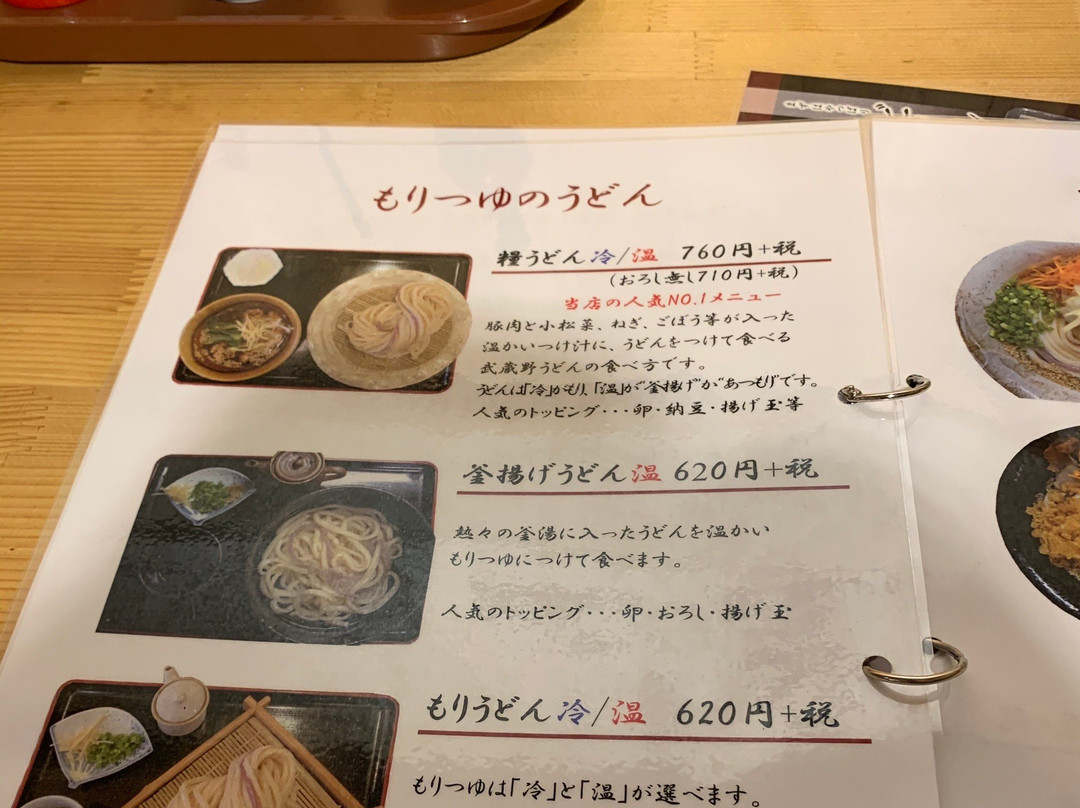 もりつゆのうどん
糧うどん 冷/温 760円+税
(おろし無し710円+税)
当店の人気NO.1メニュー
豚肉と小松菜、ねぎ、ごぼう等が入った
温かいつけ汁に、うどんをつけて食べる
武蔵野うどんの食べ方です。
うどんは「冷」がもり、「温」が“釜揚げ”か“あつもり”です。
人気のトッピング・・・卵・納豆・揚げ玉等
釜揚げうどん 温 620円+税
熱々の釜湯に入ったうどんを温かい
もりつゆにつけて食べます。
人気のトッピング・・・卵・おろし・揚げ玉
もりうどん 冷/温 620円+税
もりつゆは「冷」と「温」が選べます。